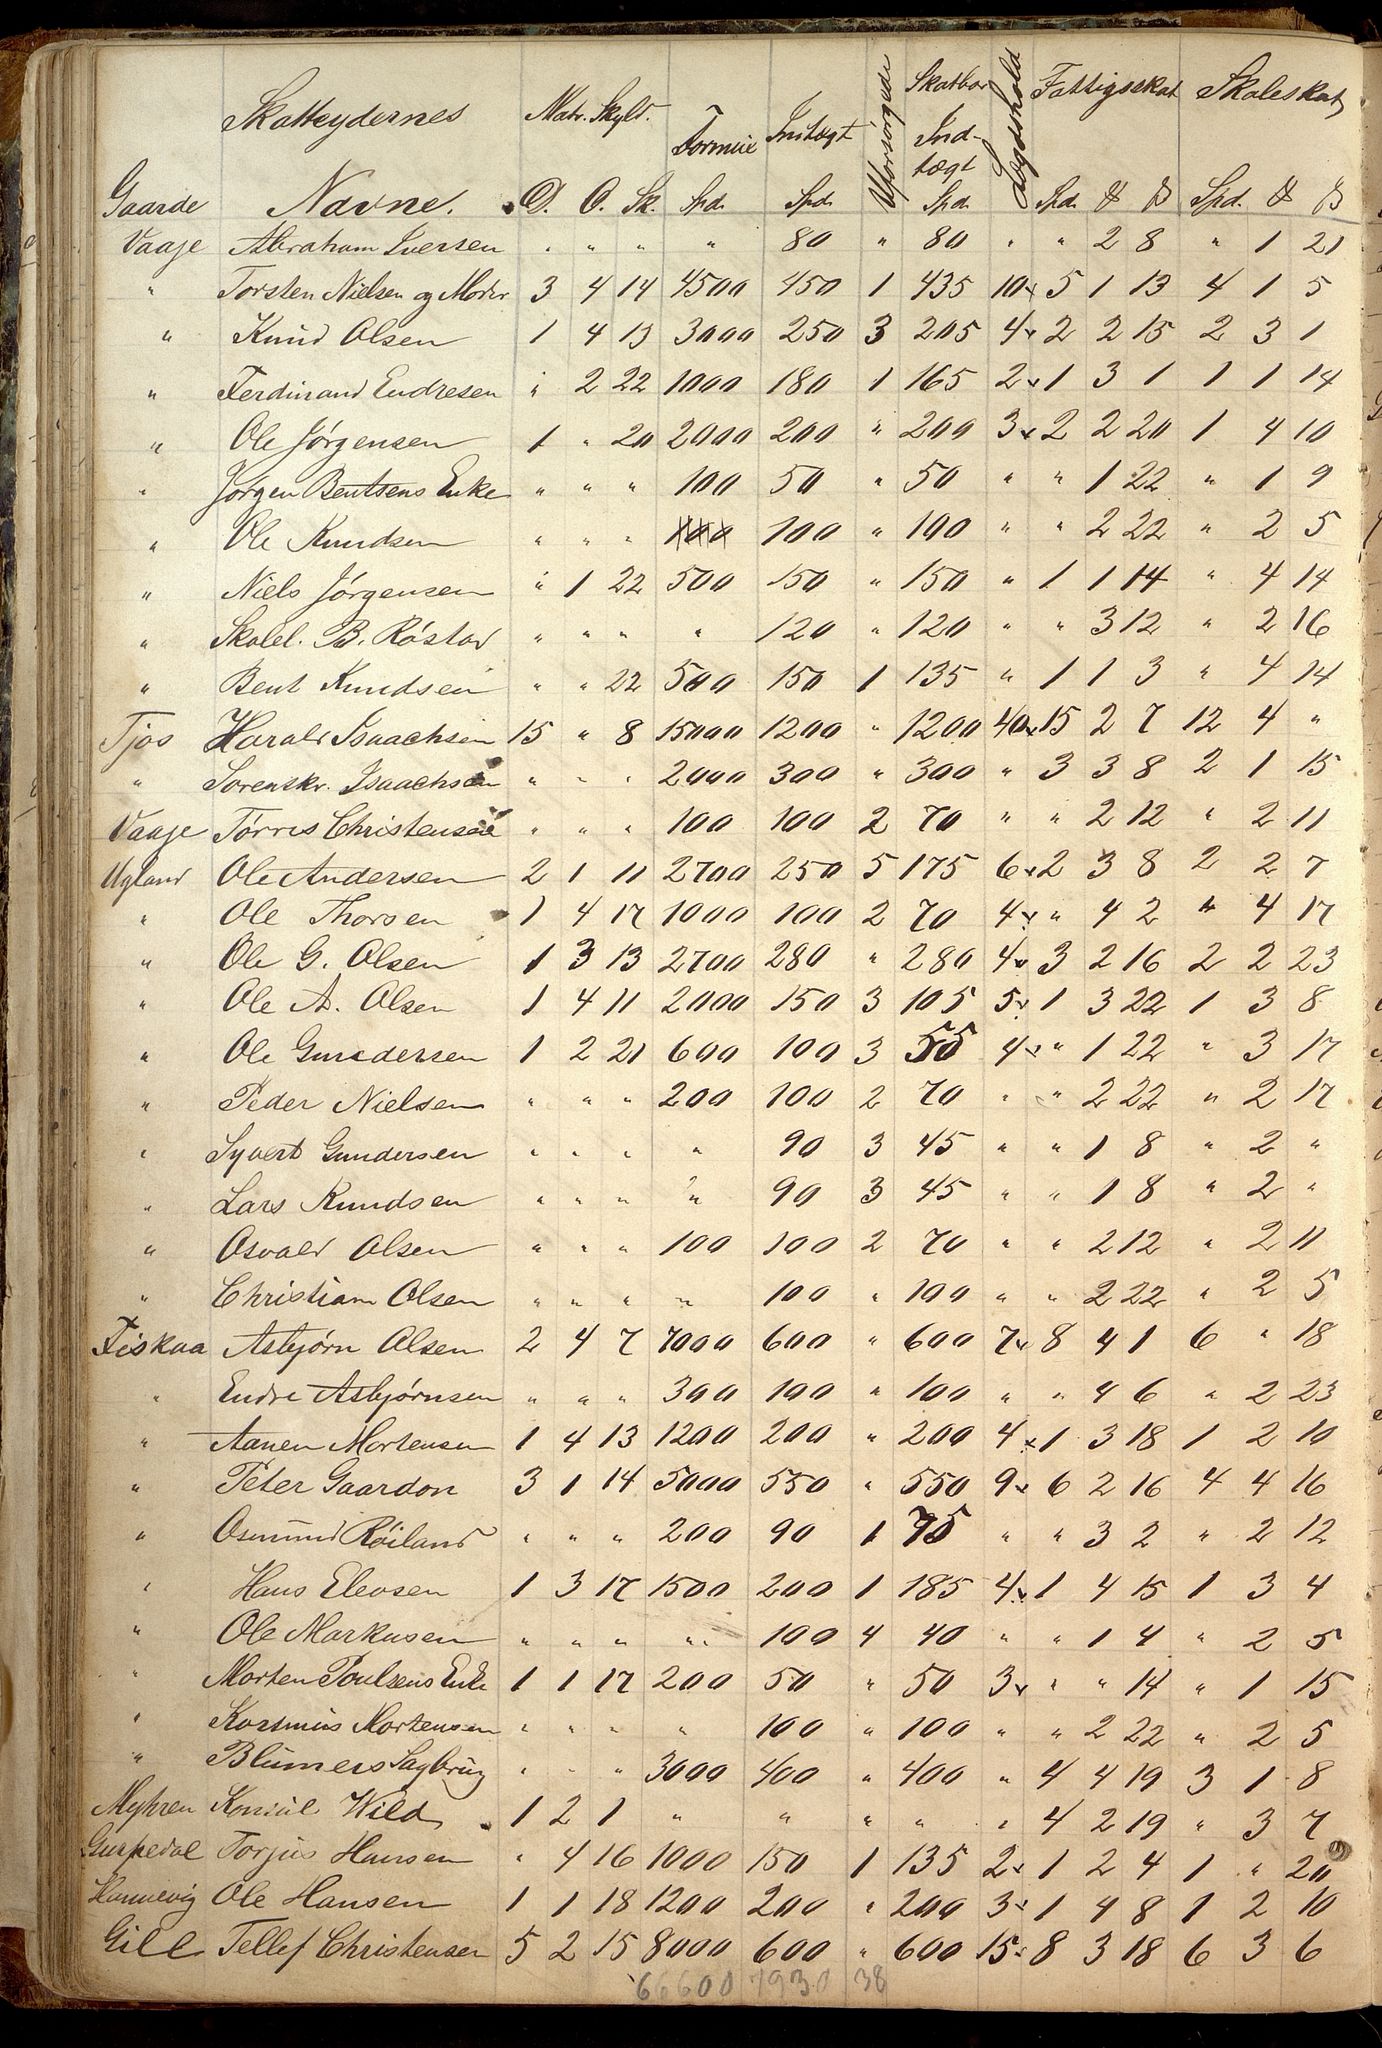 Skatteydernes Matr. Skyld. Formue Indtægt Uforsørgede Skatbar Indtægt Lægdshold Fattigskat Skoleskat
Gaarde Navne. D. O. Sk. Spd. Spd. Spd. Spd. ₰ ß Spd. ₰ ß
Vaaje Abraham Iversen " " " " 80 " 80 " " 2 8 " 1 21
" Torsten Nielsen og Moder 3 4 14 4500 450 1 435 10x 5 1 13 4 1 5
" Knud Olsen 1 4 13 3000 250 3 205 4x 2 2 15 2 3 1
" Ferdinand Endresen " 2 22 1000 180 1 165 2x 1 3 1 1 1 14
" Ole Jørgensen 1 " 20 2000 200 " 200 3x 2 2 20 1 4 10
" Jørgen Bentsens Enke " " " 100 50 " 50 " " 1 22 " 1 9
" Ole Knudsen " " " 1000 100 " 100 " " 2 22 " 2 5
" Niels Jørgensen " 1 22 500 150 " 150 " 1 1 14 " 4 14
" Skolel. B. Røstad " " " " 120 " 120 " " 3 12 " 2 16
" Bent Knudsen " " 22 500 150 1 135 " 1 1 3 " 4 14
Tjos Harald Isaachsen 15 " 8 15000 1200 " 1200 40x 15 2 7 12 4 "
" Sorenskr. Isaachsen " " " 2000 300 " 300 " 3 3 8 2 1 15
Vaaje Tørres Christensen " " " 100 100 2 70 " " 2 12 " 2 11
Ugland Ole Andersen 2 1 11 2700 250 5 175 6x 2 3 8 2 2 7
" Ole Thorsen 1 4 17 1000 100 2 70 4x " 4 2 " 4 17
" Ole G. Olsen 1 3 13 2700 280 " 280 4x 3 2 16 2 2 23
" Ole A. Olsen 1 4 11 2000 150 3 105 5x 1 3 22 1 3 8
" Ole Gundersen 1 2 21 600 100 3 55 4x " 1 22 " 3 17
" Peder Nielsen " " " 200 100 2 70 " " 2 22 " 2 17
" Syvert Gundersen " " " " 90 3 45 " " 1 8 " 2 "
" Lars Knudsen " " " " 90 3 45 " " 1 8 " 2 "
" Osvald Olsen " " " 100 100 2 70 " " 2 12 " 2 11
" Christiam Olsen " " " " 100 " 100 " " 2 22 " 2 5
Fiskaa Asbjørn Olsen 2 4 7 7000 600 " 600 7x 8 4 1 6 " 18
" Endre Asbjørnsen " " " 300 100 " 100 " " 4 6 " 2 23
" Aanen Mortensen 1 4 13 1200 200 " 200 4x 1 3 18 1 2 10
" Peter Gaardon 3 1 14 5000 550 " 550 9x 6 2 16 4 4 16
" Osmund Røiland " " " 200 90 1 75 " " 3 2 " 2 12
" Hans Elevsen 1 3 17 1500 200 1 185 4x 1 4 15 1 3 4
" Ole Markusen " " " " 100 4 40 " " 1 4 " 2 5
" Morten Poulsens Enke 1 1 17 200 50 " 50 3x " " 14 " 1 15
" Kasmus Mortensen " " " " 100 " 100 " " 2 22 " 2 5
" Blumers Sagbrug " " " 3000 400 " 400 " 4 4 19 3 1 8
Myhren Konsul Wild 1 2 1 " " " " " 4 2 19 " 3 7
Guspedal Torjus Hansen " 4 16 1000 150 1 135 2x 1 2 4 1 " 20
Hannevig Ole Hansen 1 1 18 1200 200 " 200 3x 1 4 8 1 2 10
Gill Tellef Christensen 5 2 15 8000 600 " 600 15x 8 3 18 6 3 6
66600 7930 38